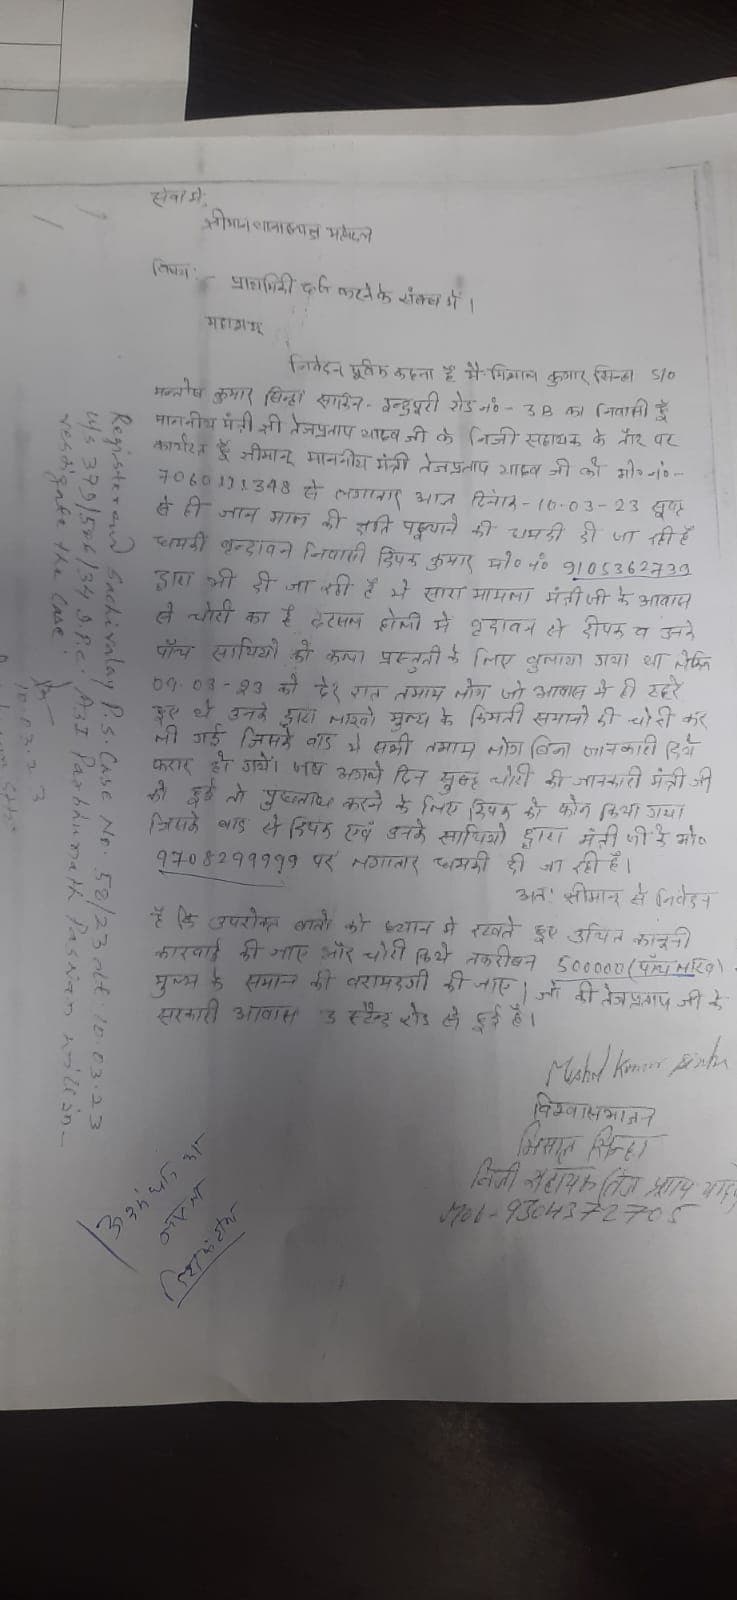 सेवा में,
श्रीमान थानाध्यक्ष महोदय
विषय:- प्राथमिकी दर्ज करने के संबंध में।
महाशय
निवेदन पूर्वक कहना है मैं मिशाल कुमार सिन्हा S/O
कुमार सिन्हा साकिन - इन्द्रपुरी रोड नं० - 3B का निवासी हूँ
माननीय मंत्री श्री तेजप्रताप यादव जी के निजी सहायक के तौर पर
कार्यरत हूँ श्रीमान माननीय मंत्री तेजप्रताप यादव जी को मो० नं० -
7060111348 से लगातार आज दिनांक - 10.03-23 सुबह
से ही जान माल की क्षति पहुंचाने की धमकी दी जा रही है
धमकी वृन्दावन निवासी दिपक कुमार मो० नं० 9105362739
द्वारा भी दी जा रही है ये सारा मामला मंत्री जी के आवास
से चोरी का है दरसल होली मे वृदावन से दीपक व उनके
पाँच साथियों को कला प्रस्तुती के लिए बुलाया गया था लेकिन
09.03-23 को देर रात तमाम लोग जो आवास मे ही ठहरे
हुए थे उनके द्वारा लाखो मुल्य के किमती समानो की चोरी कर
ली गई जिसके बाद ये सभी तमाम लोग बिना जानकारी दिये
फरार हो गये। जब अगले दिन सुबह चोरी की जानकारी मंत्री जी
को हुई तो पुछताछ करने के लिए दिपक को फोन किया गया
जिसके बाद से दिपक एवं उनके साथियो द्वारा मंत्री जी के मो०
9708299999 पर लगातार धमकी दी जा रही है।
अतः श्रीमान से निवेदन
है कि उपरोक्त बातो को ध्यान मे रखते हुए उचित कानूनी
कारवाई की जाए और चोरी किये तकरीबन 500000 (पाँच लाख)
मुल्य के समान की बरामदगी की जाए। जो की तेजप्रताप जी के
सरकारी आवास 3 स्टैन्ड रोड से हुई है।
विश्वासभाजन
मिशाल सिन्हा
निजी सहायक तेज प्रताप
Mob - 9304372705
Registered Sachivalay P.S. Case No. 58/23 dt. 10.03.23
u/s 379/506/34 I.P.C. ASI Pashupati Nath Paswan will in-
vestigate the case.
10.03.23